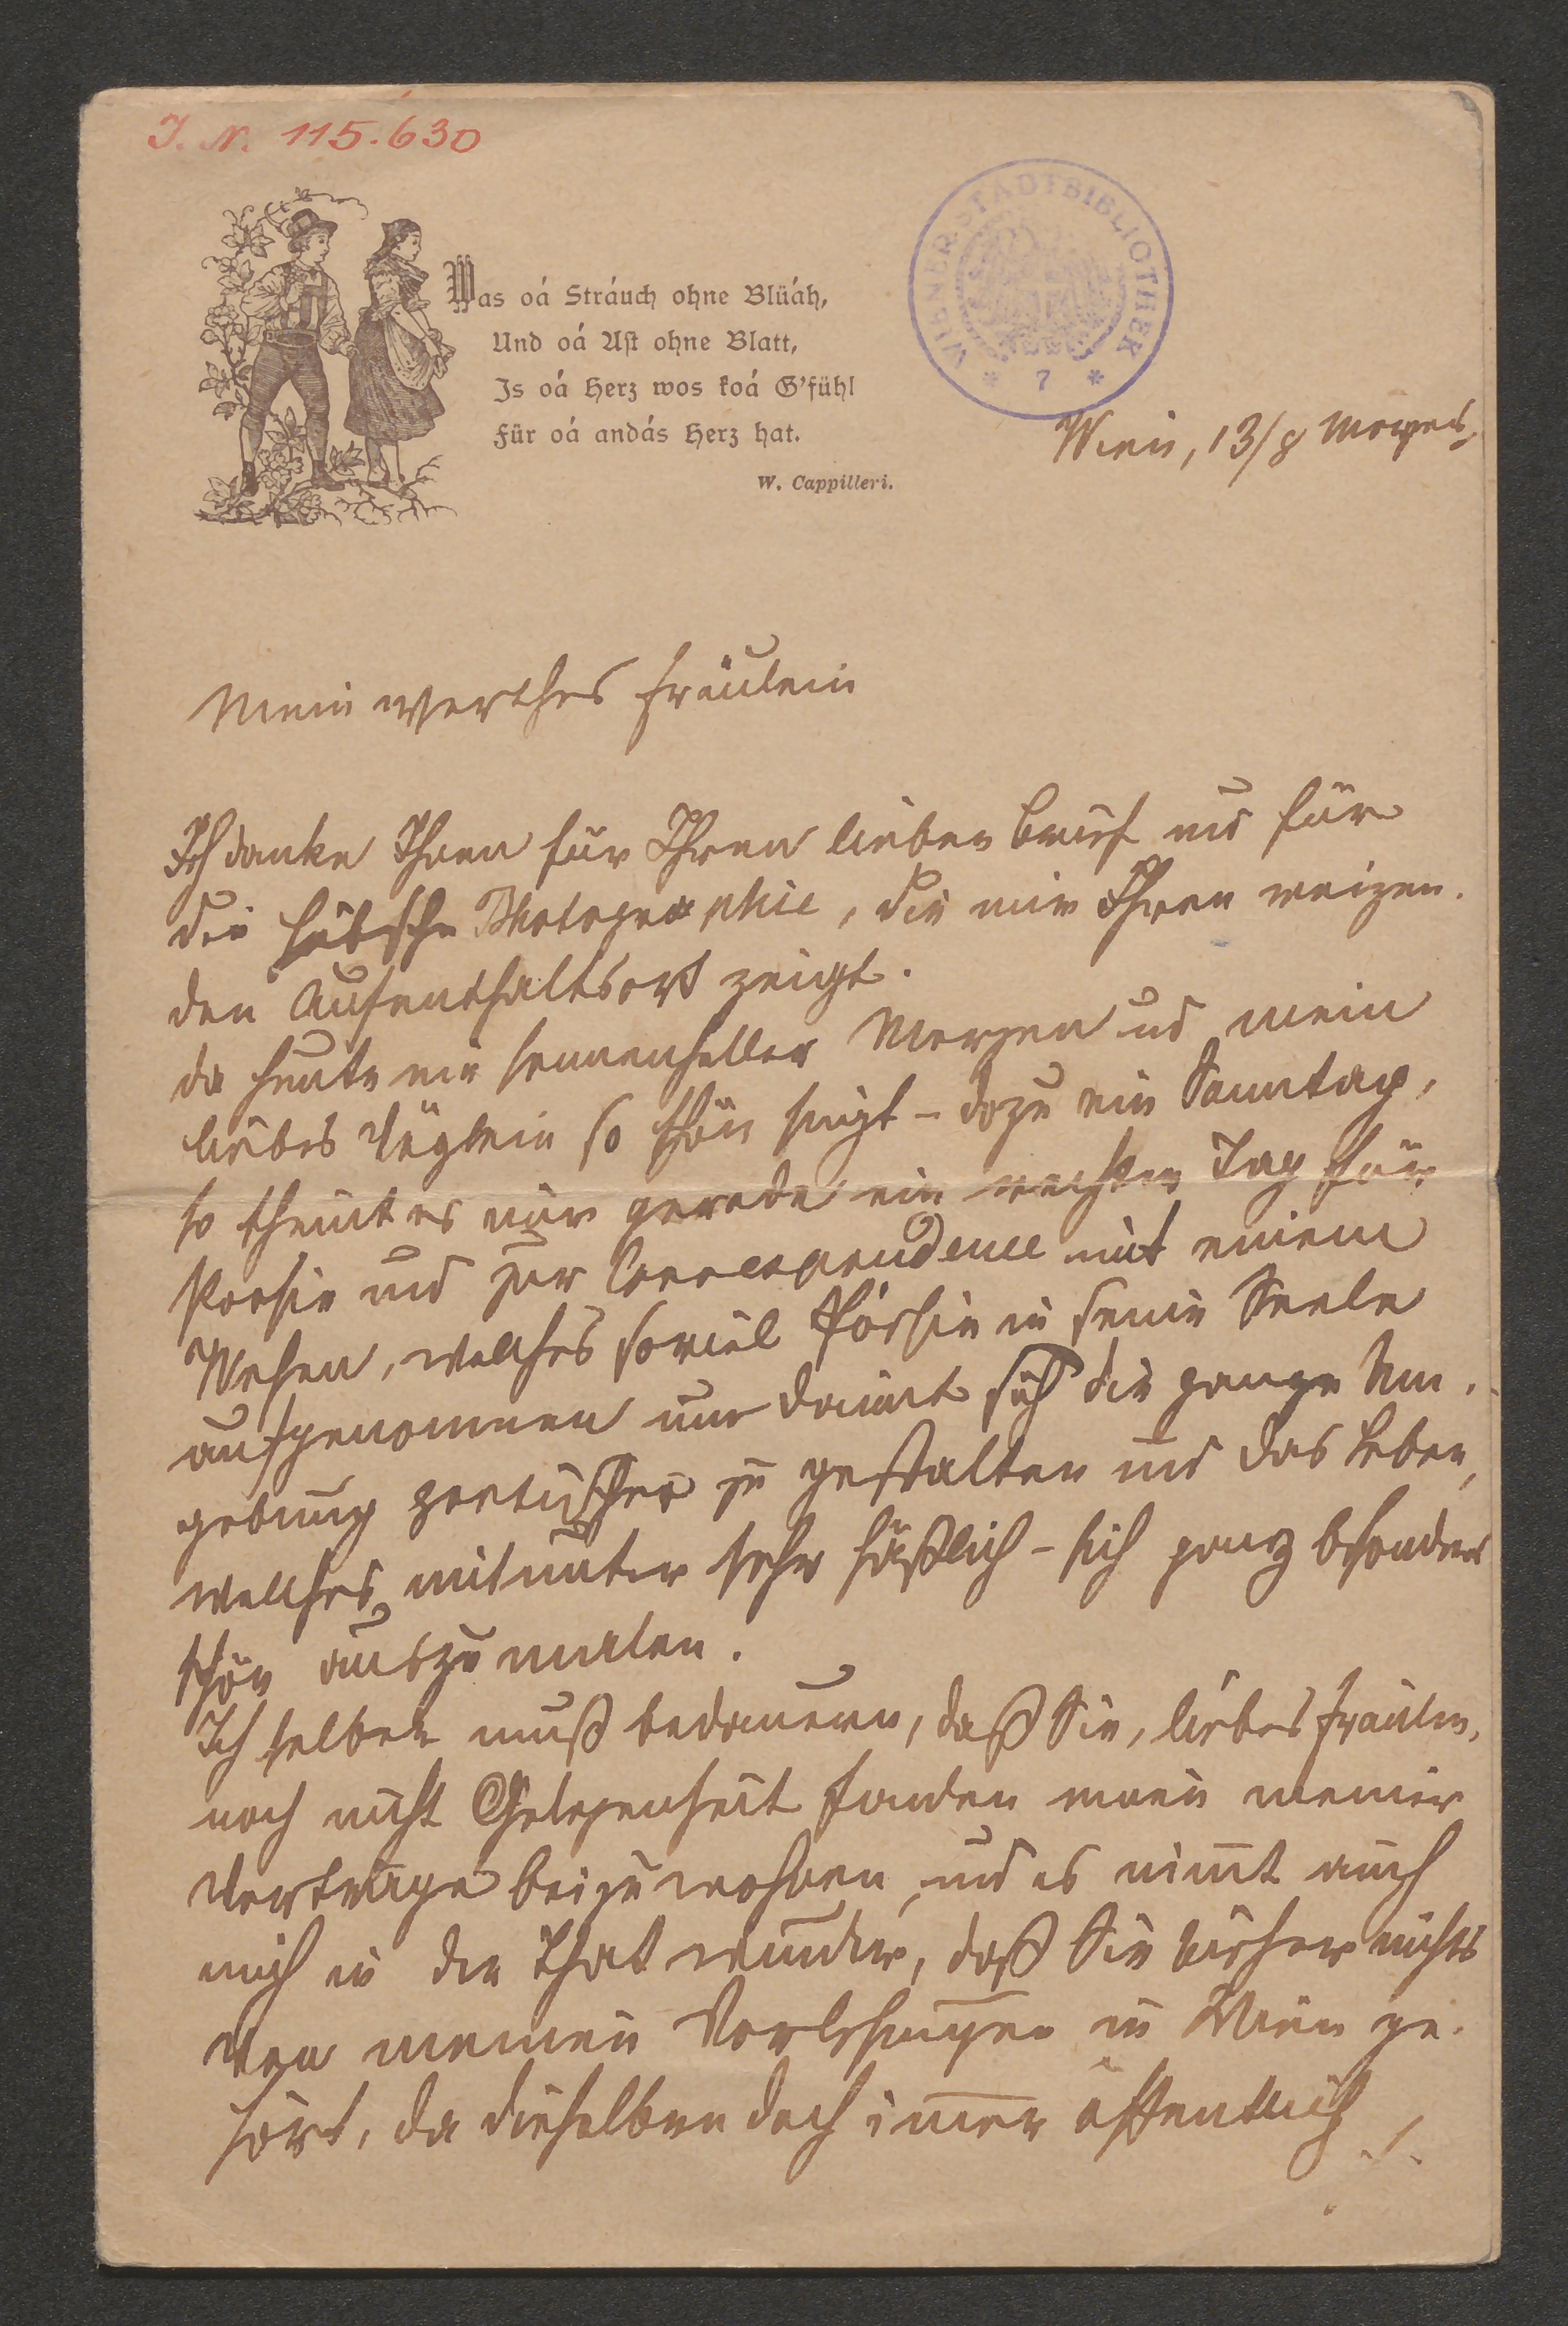 I. N. 115.630
WIENER STADTBIBLIOTHEK
* 7 *
Was oá Sträuch ohne Blüáh,
Und oá Ast ohne Blatt,
Is oá Herz wos koá G'fühl
Für oá andás Herz hat.
W. Cappilleri.
Wien, 13/8 Morgens,
Mein werthes Fräulein
Ich danke Ihnen für Ihren lieben Brief und für
die hübsche Photographie, die mir Ihren reizen-
den Aufenthaltsort zeigt.
da heute ein sonnenheller Morgen und mein
liebes Vöglein so schön singt - dazu ein Sonntag,
so scheint es mir gerade ein rechter Tag für
Poesie und zur Correspondence mit einem
Wesen, welches soviel Poesie in seine Seele
aufgenommen um damit sich die ganze Um-
gebung poetischer zu gestalten und das Leben,
welches mitunter sehr häßlich - sich ganz besonders
schön auszumalen.
Ich selber muß bedauern, daß Sie, liebes Fräulein,
noch nicht Gelegenheit fanden einen meiner
Vorträge beizuwohnen, und es nimt auch
mich in der That wunder, daß Sie bisher nichts
von meinen Vorlesungen in Wien ge-
hört, da dieselben doch immer öffentlich
./.